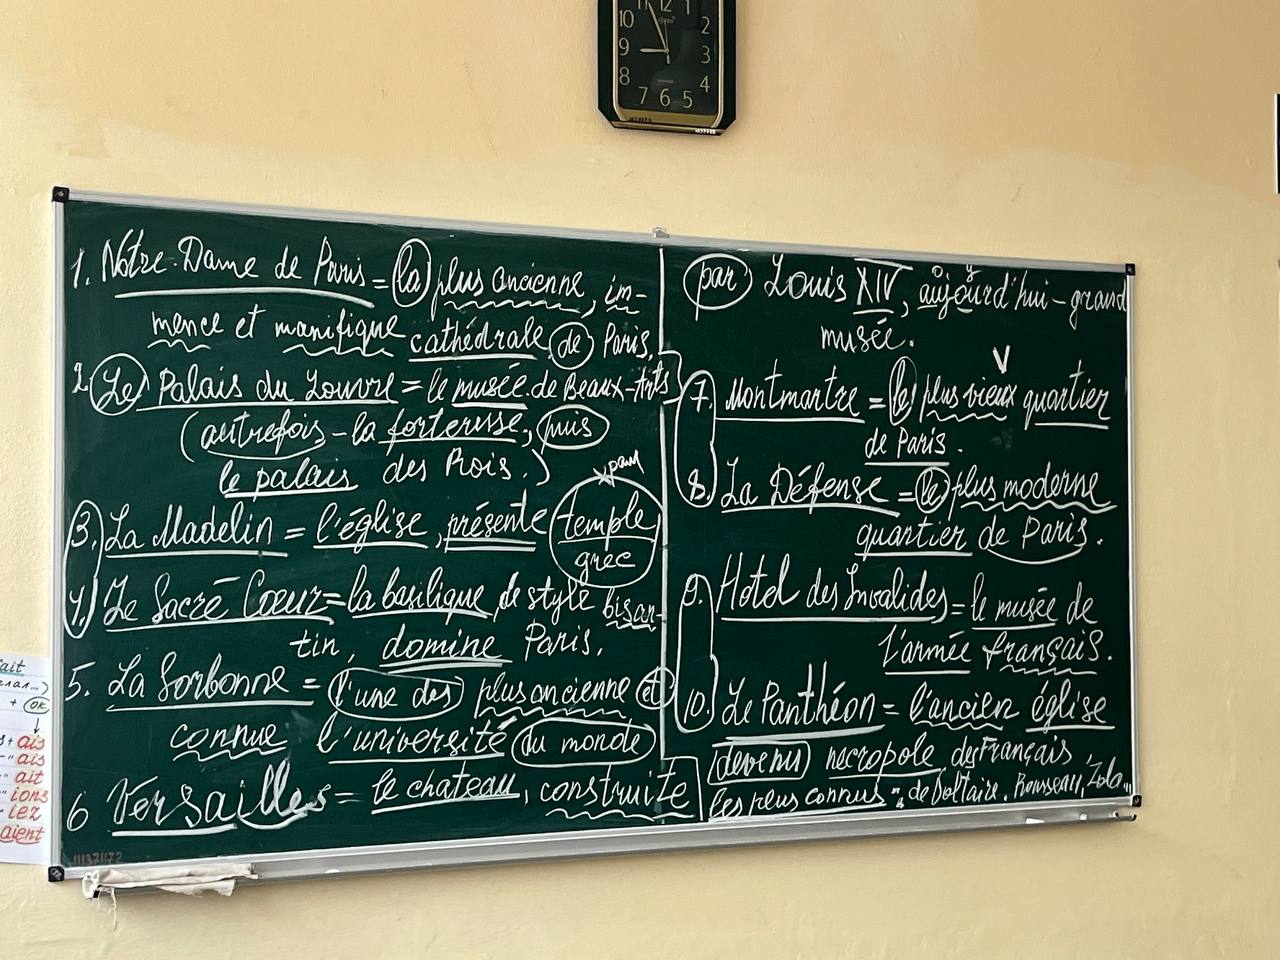 11 12 1
10 2
9 3
8 4
7 6 5
1. Notre-Dame de Paris = la plus ancienne, im-
mence et manifique cathédrale de Paris.
2. Le Palais du Louvre = le musée de Beaux-Arts
(autrefois - la forteresse, puis
le palais des Rois.)
3. La Madelin = l'église, présente temple
grec
4. Le Sacré Cœur = la basilique, de style bisan-
tin, domine Paris.
5. La Sorbonne = l'une des plus ancienne et
connue l'université du monde
6 Versailles = le chateau, construite
par Louis XIV, aujourd'hui - grand
musée.
7. Montmartre = le plus vieux quartier
de Paris.
8. La Défense = le plus moderne
quartier de Paris.
9. Hotel des Invalides = le musée de
l'armée français.
10. Le Panthéon = l'ancien église
devenu necropole des Français
les plus connus " de Voltaire, Rousseau, Zola...
ait
+ ok
s + ais
- " ais
- " ait
" ions
- iez
aient